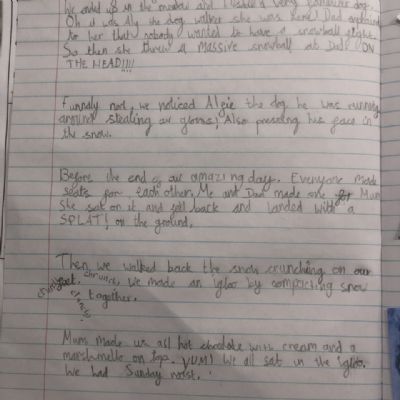 We ended up in the meadow and I stole a very familiar dog.
Oh it was Aly the dog walker she was here! Dad explained
to her that nobody wanted to have a snowball fight.
So then she threw a massive snowball at Dad: ON
THE HEAD!!!!
Funnaly nort, we noticed Algie the dog he was running
around stealing our gloves! Also pressing his face in
the snow.
Before the end of our amazing day. Everyone made
seats for each other, Me and Dad made one for Mum
She sat on it and fell back and landed with a
SPLAT! on the ground.
Then we walked back the snow crunching on our
feet. We made an igloo by compacting snow
crunch, chrunch, crunch
together.
Mum made us all hot chocolate with cream and a
marshmello on top. YUM! We all sat in the igloo.
We had Sunday roast.